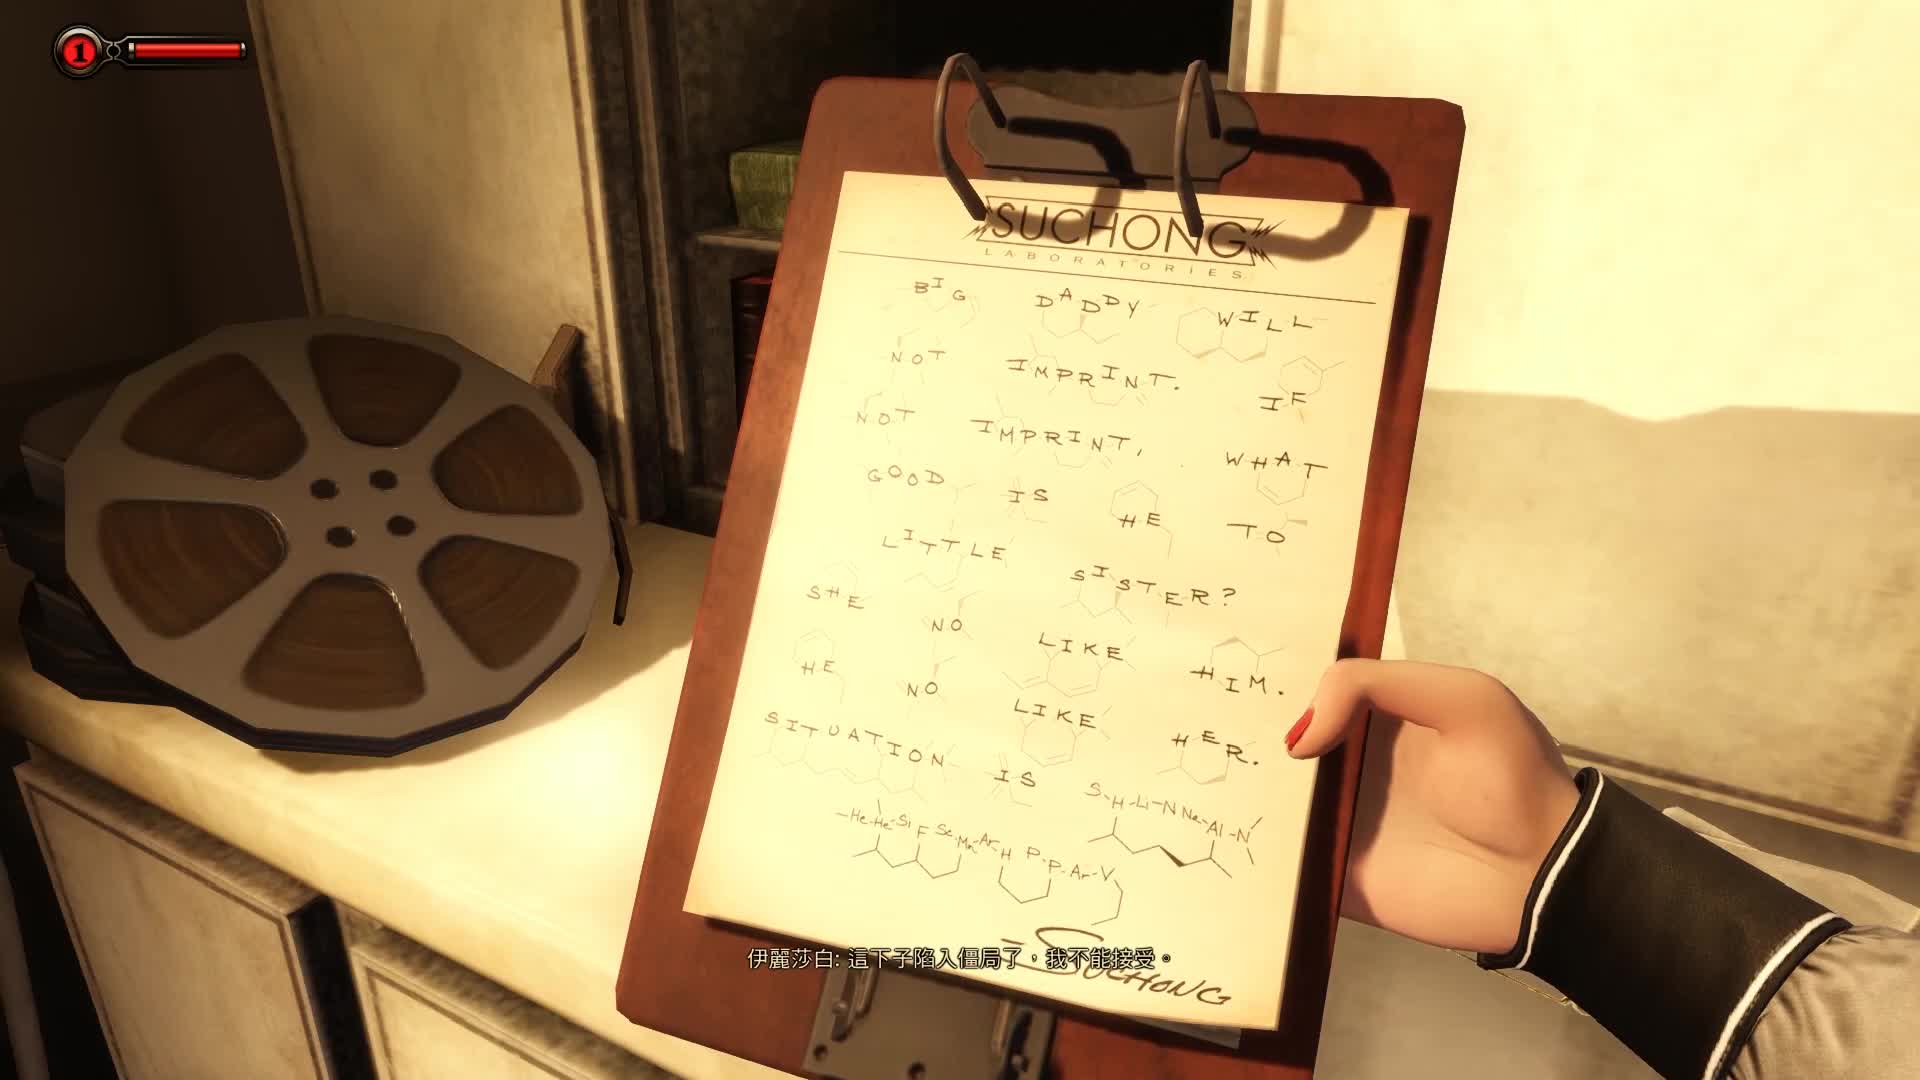 1
SUCHONG
LABORATORIES
BIG DADDY WILL
NOT IMPRINT. IF
NOT IMPRINT, WHAT
GOOD IS HE TO
LITTLE SISTER?
SHE NO LIKE HIM.
HE NO LIKE HER.
SITUATION IS S-H-Li-N Ne-Al-N
-He-He-Si F Se-Mn-Ar H P-P-Ar-V
-SUCHONG
伊麗莎白: 這下子陷入僵局了，我不能接受。